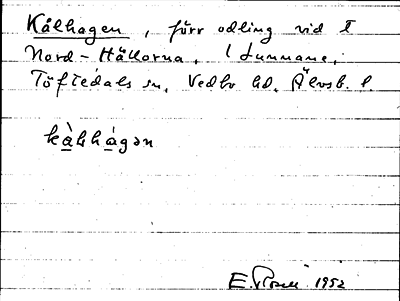 Kålhagen, förr odling vid I
Nord-Hällorna, i Lunnane,
Töftedals sn, Vedbo hd, Älvsb. l.
kàlhágən
E. Rosell 1952